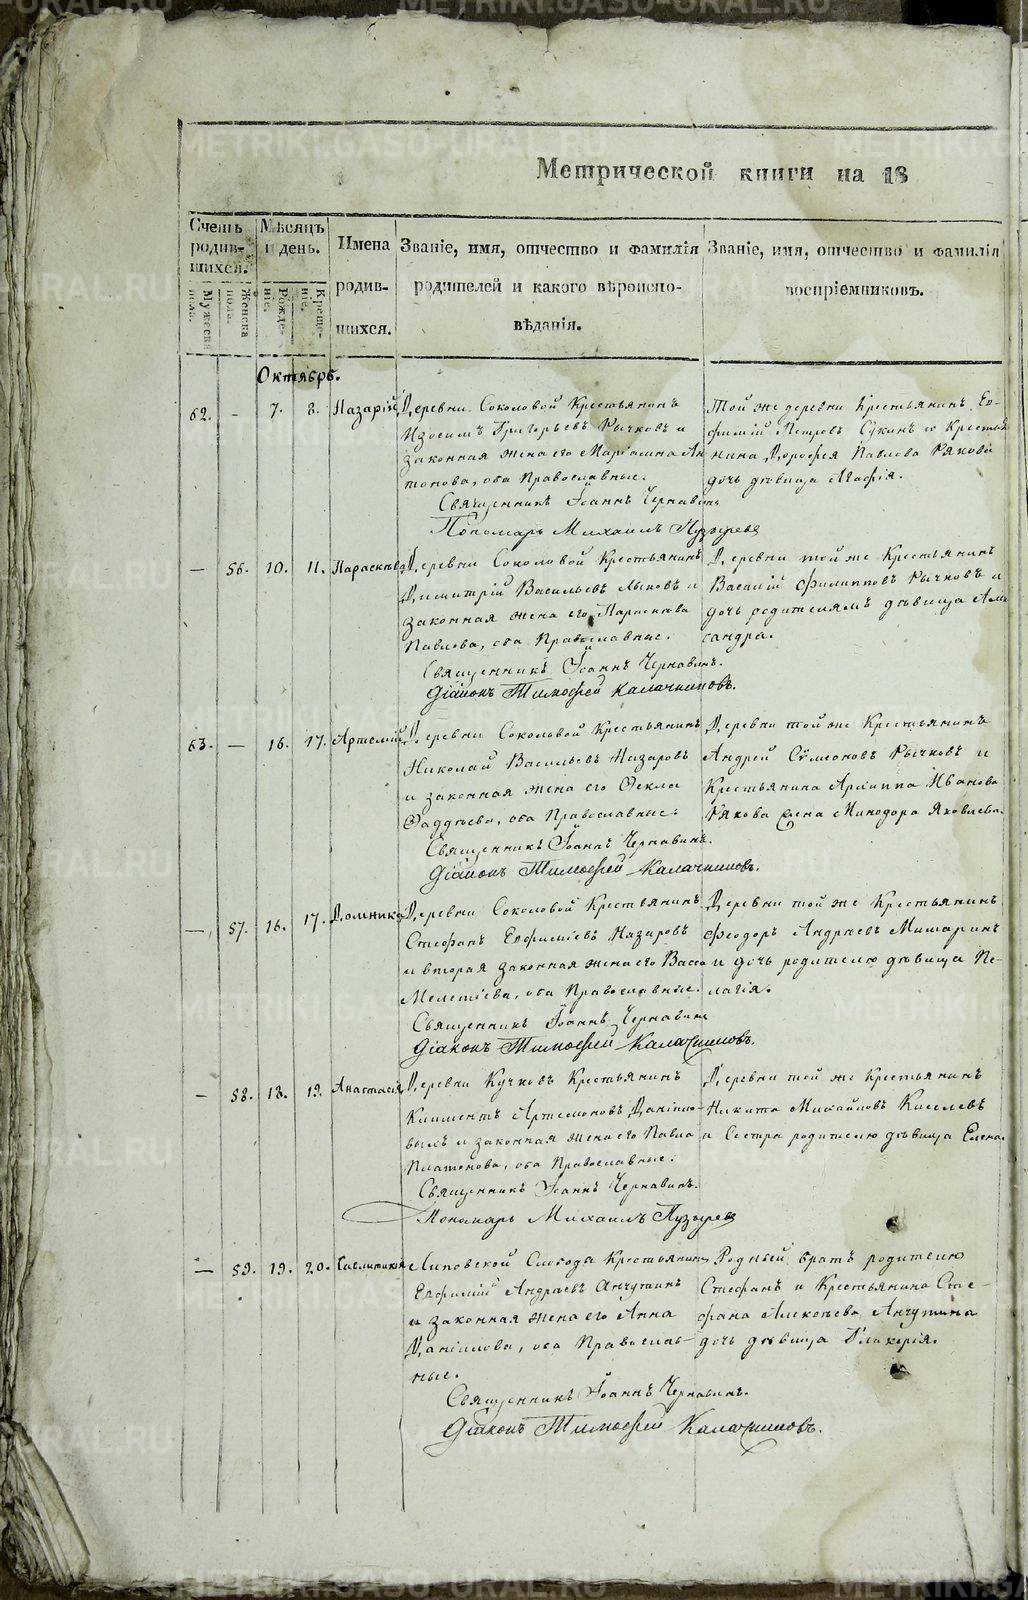 METRIKI.GASO-URAL.RU
Метрической книги на 18
Счетъ родив-шихся.
Мѣсяцъ и день.
Имена родив-шихся.
Званіе, имя, отчество и фамилія родителей и какого вѣроиспо-вѣданія.
Званіе, имя, отчество и фамилія воспріемниковъ.
Мужеска пола.
Женска пола.
Рожде-ніе.
Креще-ніе.
Октябрь.
62. – 7. 8. Назарій
Деревни Соколовой Крестьянинъ
Изосимъ Григорьевъ Рычковъ и
законная жена его Маріамна Ан
тонова, оба Православные.
Той же деревни Крестьянинъ Ев-
фимій Петровъ Сукинъ и Крестья
нина Дорофея Павлова Рякова
дочь дѣвица Агафія.
Священникъ Іоаннъ Чернавинъ
Пономарь Михаилъ Пузыревъ
– 56. 10. 11. Параскева
Деревни Соколовой Крестьянинъ
Димитрій Васильевъ и
законная жена его Параскева
Павлова, оба Православные.
Деревни той же Крестьянинъ
Василій Филипповъ Рычковъ и
дочь родителямъ дѣвица Алек
сандра.
Священникъ Іоаннъ Чернавинъ.
Діаконъ Тимофей Калачниковъ.
63. – 16. 17. Артемій
Деревни Соколовой Крестьянинъ
Николай Васильевъ Назаровъ
и законная жена его Фекла
Фаддѣева, оба Православные.
Деревни той же Крестьянинъ
Андрей Сѵмеоновъ Рычковъ и
Крестьянина Архиппа Иванова
Рякова жена Минодора Яковлева.
Священникъ Іоаннъ Чернавинъ.
Діаконъ Тимофей Калачниковъ.
–, 57. 16. 17. Домника
Деревни Соколовой Крестьянинъ
Стефанъ Евфиміевъ Назаровъ
и вторая законная жена его Васса
Мелетіева, оба Православные.
Деревни той же Крестьянинъ
Феодоръ Андреевъ Мишаринъ
и дочь родителю дѣвица Пе-
лагія.
Священникъ Іоаннъ Чернавинъ
Діаконъ Тимофей Калачниковъ.
– 58. 18. 19. Анастасія
Деревни Кучковъ Крестьянинъ
Климентъ Артемоновъ Даніило-
выхъ и законная жена его Павла
Платонова, оба Православные.
Деревни той же Крестьянинъ
Никита Михайловъ Киселевъ
и Сестра родителю дѣвица Елена.
Священникъ Іоаннъ Чернавинъ.
Пономарь Михаилъ Пузыревъ
– 59. 19. 20. Гликерія
Липовской Слободы Крестьянинъ
Евфимій Андреевъ Анчутинъ
и законная жена его Анна
Даніилова, оба Православ-
ные.
Родный братъ родителю
Стефанъ и Крестьянина Сте-
фана Алексѣева Анчутина
дочь дѣвица Гликерія.
Священникъ Іоаннъ Чернавинъ.
Діаконъ Тимофей Калачниковъ.